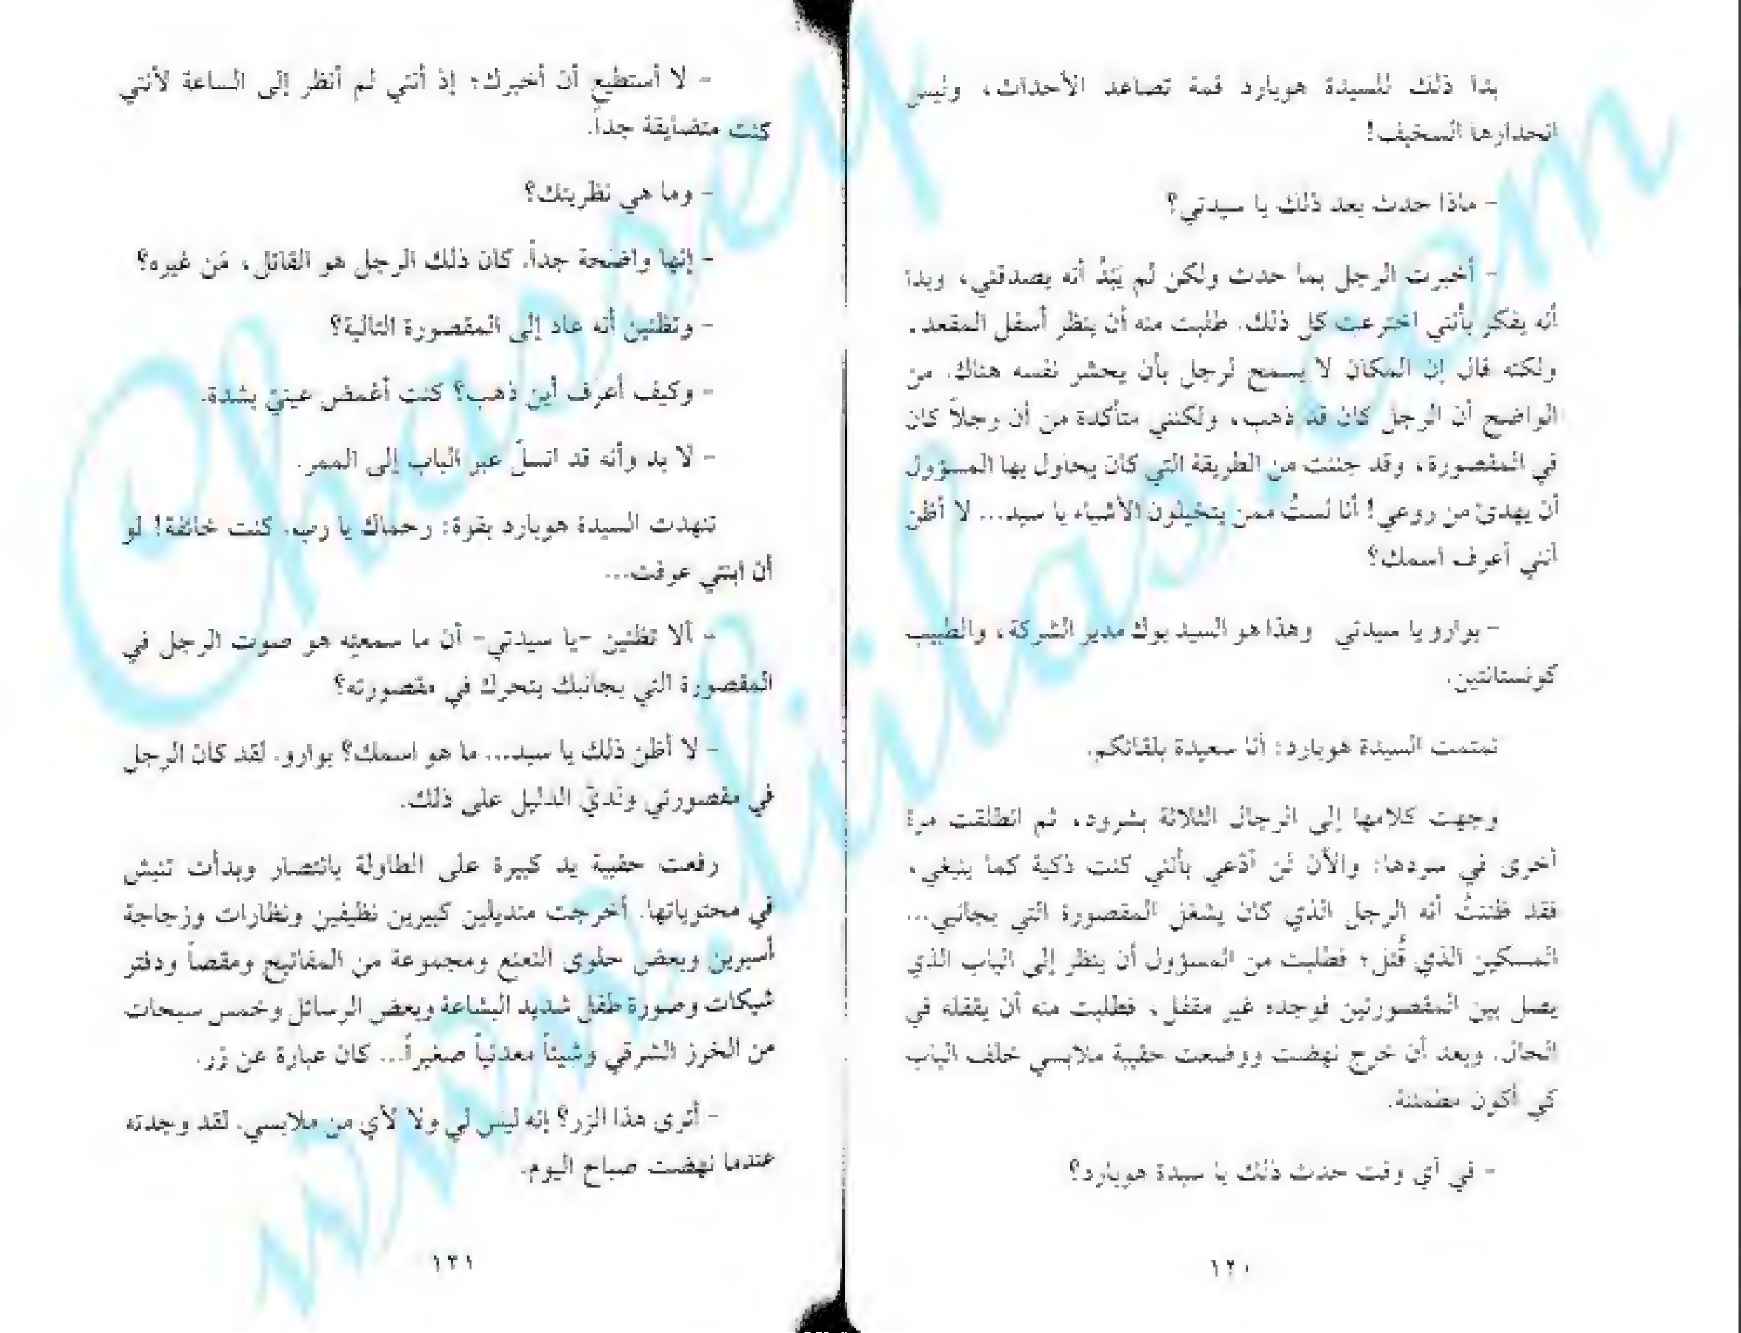 بدا ذلك للسيدة هوبارد قمة تصاعد الأحداث، وليس
انحدارها السخيف!
- ماذا حدث بعد ذلك يا سيدتي؟
- أخبرت الرجل بما حدث ولكن لم يَبْدُ أنه يصدقني، وبدا
أنه يفكر بأنني اخترعت كل ذلك. طلبت منه أن ينظر أسفل المقعد،
ولكنه قال إن المكان لا يسمح لرجل بأن يحشر نفسه هناك. من
الواضح أن الرجل كان قد ذهب، ولكنني متأكدة من أن رجلاً كان
في المقصورة، وقد جننت من الطريقة التي كان يحاول بها المسؤول
أن يهدئ من روعي! أنا لستُ ممن يتخيلون الأشياء يا سيد... لا أظن
أنني أعرف اسمك؟
- بوارو يا سيدتي وهذا هو السيد بوك مدير الشركة، والطبيب
كونستانتين.
تمتمت السيدة هوبارد: أنا سعيدة بلقائكم.
وجهت كلامها إلى الرجال الثلاثة بشرود، ثم انطلقت مرة
أخرى في سردها: والآن لن أدّعي بأنني كنت ذكية كما ينبغي،
فقد ظننتُ أنه الرجل الذي كان يشغل المقصورة التي بجانبي...
المسكين الذي قُتل؛ فطلبت من المسؤول أن ينظر إلى الباب الذي
يصل بين المقصورتين فوجده غير مقفل، فطلبت منه أن يقفله في
الحال. وبعد أن خرج نهضت ووضعت حقيبة ملابسي خلف الباب
كي أكون مطمئنة.
- في أي وقت حدث ذلك يا سيدة هوبارد؟
١٢٠
- لا أستطيع أن أخبرك؛ إذ أنني لم أنظر إلى الساعة لأنني
كنت متضايقة جداً.
- وما هي نظريتك؟
- إنها واضحة جداً. كان ذلك الرجل هو القاتل، مَن غيره؟
- وتظنين أنه عاد إلى المقصورة التالية؟
- وكيف أعرف أين ذهب؟ كنت أغمض عينيّ بشدة.
- لا بد وأنه قد انسلّ عبر الباب إلى الممر.
تنهدت السيدة هوبارد بقوة: رحماك يا رب. كنت خائفة! لو
أن ابنتي عرفت...
- ألا تظنين -يا سيدتي- أن ما سمعتِه هو صوت الرجل في
المقصورة التي بجانبك يتحرك في مقصورته؟
- لا أظن ذلك يا سيد... ما هو اسمك؟ بوارو. لقد كان الرجل
في مقصورتي ولديّ الدليل على ذلك.
رفعت حقيبة يد كبيرة على الطاولة بانتصار وبدأت تنبش
في محتوياتها. أخرجت منديلين كبيرين نظيفين ونظارات وزجاجة
أسبرين وبعض حلوى النعنع ومجموعة من المفاتيح ومقصاً ودفتر
شيكات وصورة طفل شديد البشاعة وبعض الرسائل وخمس سبحات
من الخرز الشرقي وشيئاً معدنياً صغيراً... كان عبارة عن زر.
- أترى هذا الزر؟ إنه ليس لي ولا لأي من ملابسي. لقد وجدته
عندما نهضت صباح اليوم.
١٢١